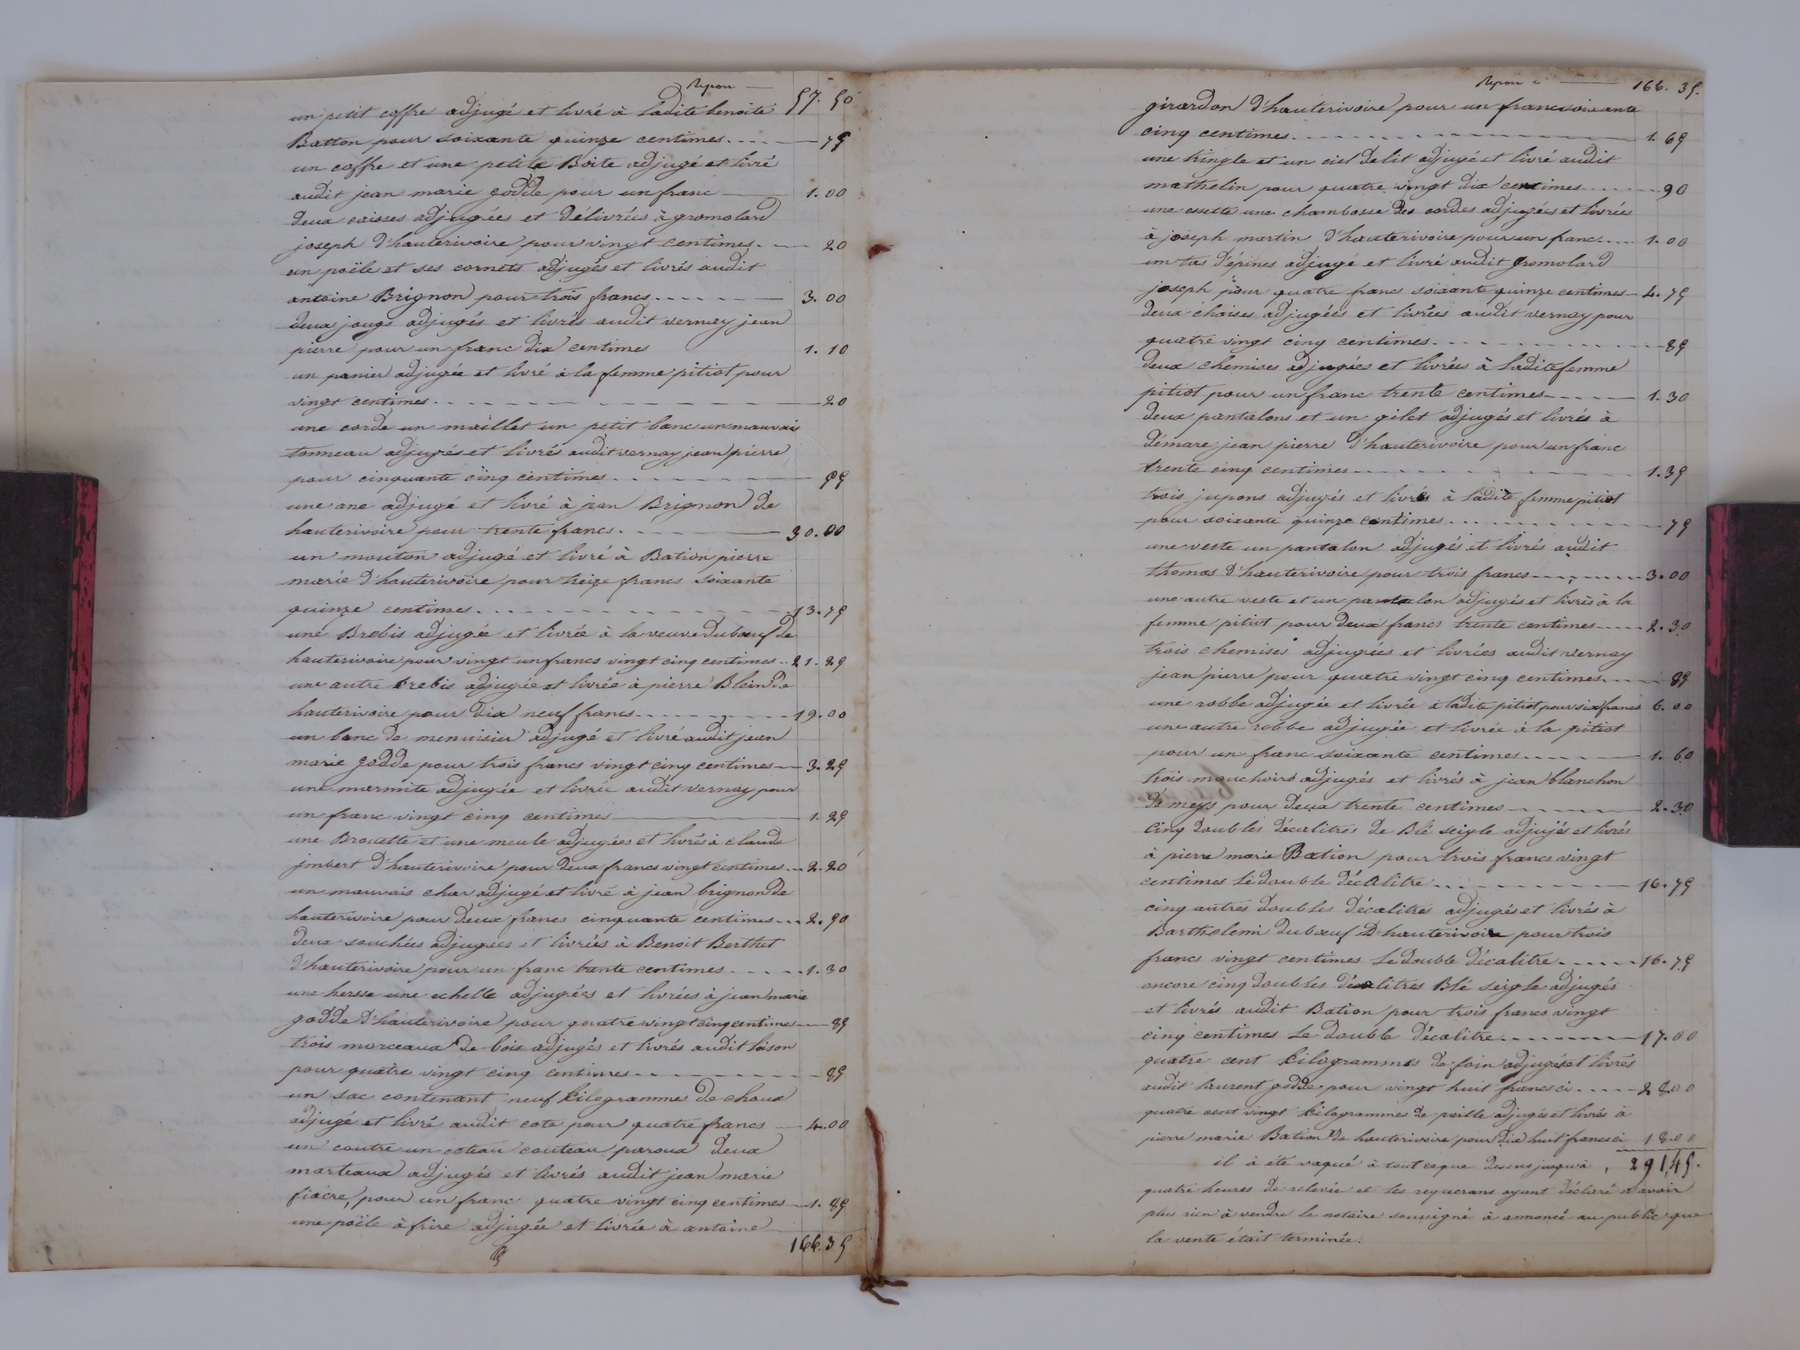 Report — 57. 50
un petit coffre adjugé et livré à ladite benoite
Batton pour soixante quinze centimes.... — 75
un coffre et une petite Boite adjugé et livré
audit jean marie godde pour un franc — 1. 00
deux caisses adjugées et délivrées à gromolard
joseph d'hauterivoire pour vingt centimes. — 20
un poële et ses cornets adjugés et livrés audit
antoine Brignon pour trois francs. — 3. 00
deux jougs adjugés et livrés audit vernay jean
pierre pour un franc dix centimes 1. 10
un panier adjugée et livré à la femme pitiot pour
vingt centimes. — 20
une corde un maillet un petit banc un mauvais
tonneau adjugés et livrés audit vernay jean pierre
pour cinquante cinq centimes. — 55
une ane adjugé et livré à jean Brignon de
hauterivoire pour trente francs. — 30. 00
un mouton adjugé et livré à Bation pierre
marie d'hauterivoire pour treize francs soixante
quinze centimes. — 13. 75
une Brebis adjugée et livrée à la veuve Dubœuf de
hauterivoire pour vingt un francs vingt cinq centimes.. 21. 25
une autre brebis adjugée et livrée à pierre Blein de
hauterivoire pour dix neuf francs. — 19. 00
un banc de menuisier adjugé et livré audit jean
marie godde pour trois francs vingt cinq centimes — 3. 25
une marmite adjugée et livrée audit vernay pour
un franc vingt cinq centimes — 1. 25
une Brouette et une meule adjugées et livrés à claude
jmbert d'hauterivoire pour deux francs vingt centimes... 2. 20
un mauvais char adjugé et livré à jean brignon de
hauterivoire pour deux francs cinquante centimes... 2. 50
deux souchées adjugées et livrées à Benoit Berthet
d'hauterivoire pour un franc trente centimes.... 1. 30
une herse une echelle adjugées et livrées à jean marie
godde d'hauterivoire pour quatre vingt cinq centimes — 85
trois morceaux de bois adjugés et livrés audit loison
pour quatre vingt cinq centimes — 85
un sac contenant neuf kilogrammes de chaux
adjugé et livré audit cote pour quatre francs — 4. 00
un coutre un coteau couteau paroux deux
marteaux adjugés et livrés audit jean marie
fiacre, pour un franc quatre vingt cinq centimes — 1. 85
une poële à frire adjugée et livrée à antoine
166. 35
Report ci — 166. 35.
girardon d'hauterivoire pour un franc soixante
cinq centimes. — 1. 65
une tringle et un ciel de lit adjugé et livré audit
mathelin pour quatre vingt dix centimes — 90
une cuette une chambosse des cordes adjugées et livrées
à joseph martin d'hauterivoire pour un franc.... 1. 00
un tas d'épines adjugé et livré audit gromolard
joseph pour quatre francs soixante quinze centimes — 4. 75
deux chaises adjugées et livrées audit vernay pour
quatre vingt cinq centimes. — 85
deux chemises adjugées et livrées à ladite femme
pitiot pour un franc trente centimes — 1. 30
deux pantalons et un gilet adjugés et livrés à
démare jean pierre d'hauterivoire pour un franc
trente cinq centimes — 1. 35
trois jupons adjugés et livrés à ladite femme pitiot
pour soixante quinze centimes — 75
une veste un pantalon adjugés et livrés audit
thomas d'hauterivoire pour trois francs — 3. 00
une autre veste et un pantalon adjugés et livrés à la
femme pitiot pour deux francs trente centimes — 2. 30
trois chemises adjugées et livrées audit vernay
jean pierre pour quatre vingt cinq centimes. — 85
une robbe adjugée et livrée à ladite pitiot pour six francs 6. 00
une autre robbe adjugée et livrée à la pitiot
pour un franc soixante centimes — 1. 60
trois mouchoirs adjugés et livrés à jean blanchon
de meys pour deux trente centimes — 2. 30
Cinq doubles décalitres de Blé seigle adjujés et livrés
à pierre marie Bation pour trois francs vingt
centimes le double décalitre — 16. 75
cinq autres doubles décalitres adjugés et livrés à
Barthelemi dubœuf d'hauterivoire pour trois
francs vingt centimes le double décalitre — 16. 75
encore cinq doubles décalitres Blé seigle adjugés
et livrés audit Bation pour trois francs vingt
cinq centimes le double décalitre — 17. 00
quatre cent kilogrammes de foin adjugés et livrés
audit laurent godde pour vingt huit francs ci — 28. 00
quatre cent vingt kilogrammes de paille adjugés et livrés à
pierre marie Bation de hauterivoire pour dix huit francs ci 18. 00
il à été vaqué à tout ce que dessus jusqu'à 291. 45.
quatre heures de relevée et les requerans ayant déclaré n'avoir
plus rien à vendre le notaire soussigné à annoncé au public que
la vente était terminée.